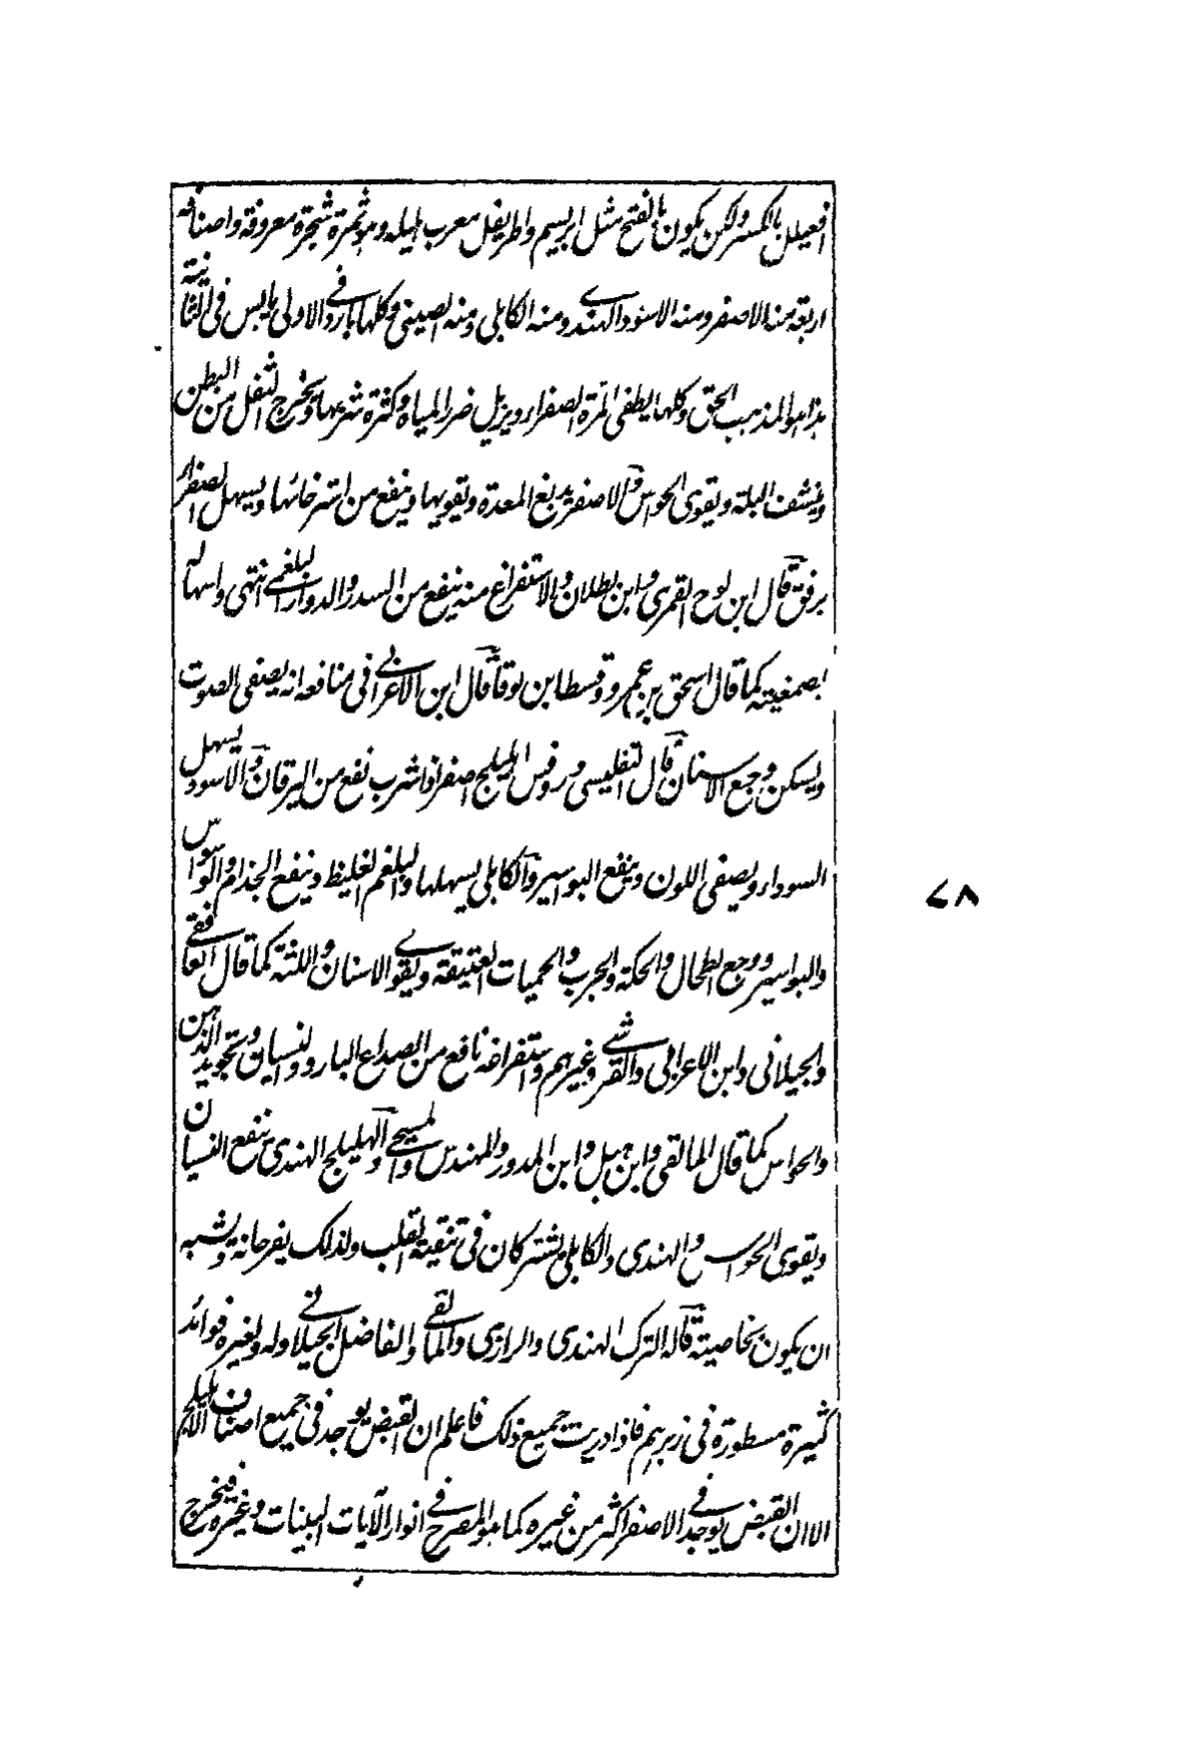 افعيلل بالكسر ولكن يكون بالفتح مثل ابريسم واطريفل معرب هليله وهو ثمرة شجرة معروفة واصنافه
اربعة منه الاصفر ومنه الاسود والهندي ومنه الكابلي ومنه الصيني وكلها بارد في الاولى يابس في الثانية
هذا هو المذهب الحق وكلها يطفى المرة الصفراء ويزيل ضرر المياه وكثرة شربها ويخرج الثفل من البطن
وينشف البلة ويقوى الحواس والاصفر يدبغ المعدة ويقويها وينفع من استرخائها ويسهل الصفراء
برفق قال ابن نوح القمري وابن بطلان والاستفراغ منه ينفع من السدر والدوار البلغمي انتهى واسهاله
بصمغيته كما قال اسحق بن عمرو وقسطا ابن لوقا قال ابن الاعرابي في منافعه انه يصفى الصوت
ويسكن وجع الاسنان قال التفليسي وروفس الهليلج اصفر اذا شرب نفع من اليرقان والاسود يسهل
السوداء ويصفى اللون وينفع البواسير والكابلي يسهلها والبلغم الغليظ وينفع الجذام والوسواس
والبواسير ووجع الطحال والحكة والجرب والحميات العتيقة ويقوي الاسنان واللثة كما قال الغافقي
والجيلاني وابن الاعرابي والقرشي وغيرهم واستفراغه نافع من الصداع البارد والنسيان وتجويد الذهن
والحواس كما قال المالقي وابن هبل وابن المدور والمهندس والمسيحي والهليلج الهندي ينفع النسيان
ويقوى الحواس والهندى والكابلي يشتركان في تنقية القلب ولذلك يفرحانه ويشبه
ان يكون بخاصية قاله الترك الهندى والرازي والمالقي والفاضل الجيلاني وله ولغيره فوائد
كثيرة مسطورة في زبرهم فاذا دريت جميع ذلك فاعلم ان القبض يوجد في جميع اصناف الاهليلج
الا ان القبض يوجد في الاصفر اكثر من غيره كما هو المصرح في انوار الآيات البينات وغيره فيخرج
٧٨